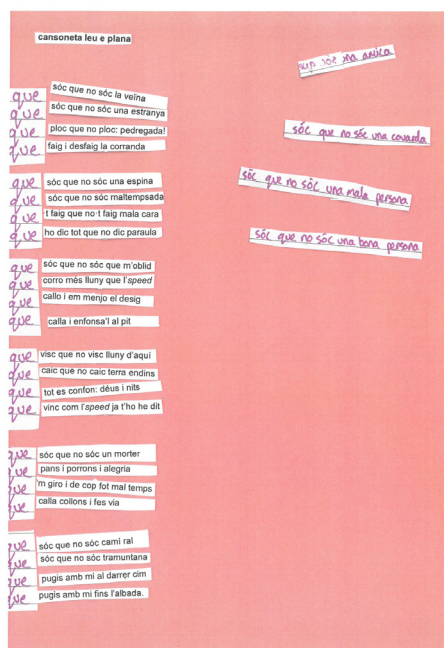 cansoneta leu e plana
que sóc que no sóc la veïna
que sóc que no sóc una estranya
que ploc que no ploc: pedregada!
que faig i desfaig la corranda
que sóc que no sóc una espina
que sóc que no sóc maltempsada
que ·t faig que no·t faig mala cara
que ho dic tot que no dic paraula
que sóc que no sóc que m'oblid
que corro més lluny que l'speed
que callo i em menjo el desig
que calla i enfonsa'l al pit
que visc que no visc lluny d'aquí
que caic que no caic terra endins
que tot es confon: déus i nits
que vinc com l'speed ja t'ho he dit
que sóc que no sóc un morter
que pans i porrons i alegria
que 'm giro i de cop fot mal temps
que calla collons i fes via
que sóc que no sóc camí ral
que sóc que no sóc tramuntana
que pugis amb mi al darrer cim
que pugis amb mi fins l'albada.
amica
sóc que no sóc una covarda
sóc que no sóc una mala persona
sóc que no sóc una bona persona